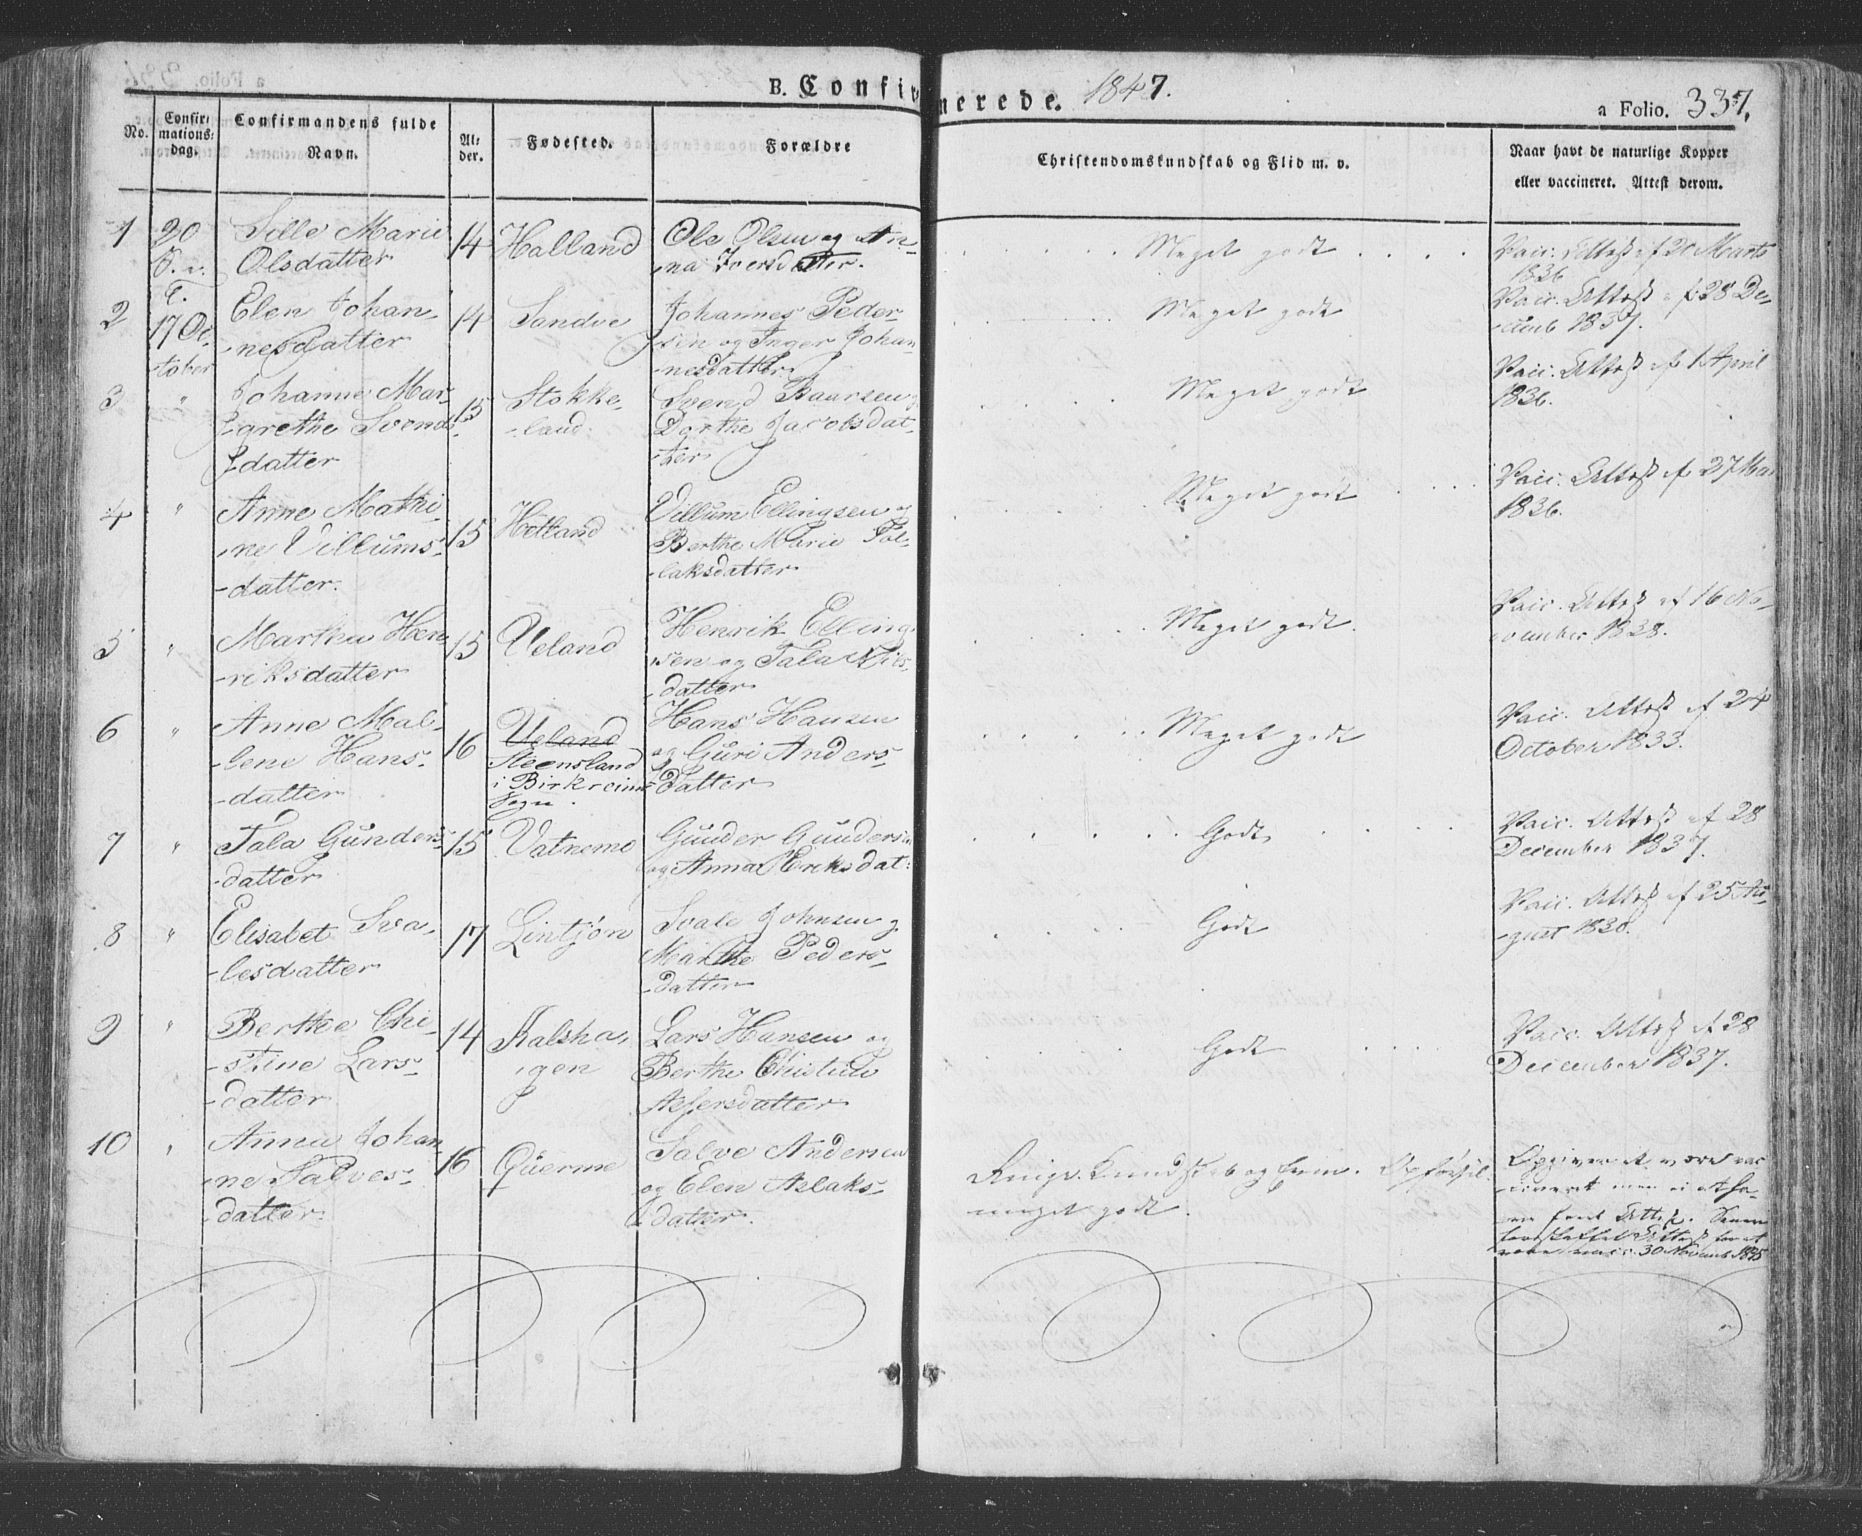 B. Confirmerede. 1847.
a Folio. 337.
No.
Confir-
mations-
dag.
Confirmandens fulde
Navn.
Al-
der.
Fødested.
Forældre
Christendomskundskab og Flid m. v.
Naar havt de naturlige Kopper
eller vaccineret. Attest derom.
1
20
S. e.
T.
17 Oc-
tober
Sille Marie
Olsdatter
14
Halland
Ole Olsen og An-
na Iversdatter.
Meget godt
Vacc. Attest af 20 Marts
1836
2
Elen Johan-
nesdatter
14
Sandve
Johannes Peder-
sen og Inger Johan-
nesdatter
Meget godt
Vacc. Attest af 28 De-
cemb 1837.
3
"
Johanne Mar-
grethe Svends-
datter
15
Stokke-
land.
Svend Paarsen og
Dorthe Jacobsdat-
ter
Meget godt
Vacc. Attest af 1 April
1836.
4
"
Anne Mathi-
ne Villums-
datter.
15
Hetland
Villum Ellingsen og
Berthe Marie Tol-
laksdatter
Meget godt
Vacc. Attest af 27 Mai
1836.
5
"
Martha Hen-
riksdatter
15
Ueland
Henrik Elling-
sen og Tala Nils-
datter
Meget godt.
Vacc. Attest af 16 No-
vember 1838.
6
"
Anne Mal-
lene Hans-
datter
16
Ueland
Steensland
i Birkreims
Sogn.
Hans Hansen
og Guri Anders-
datter
Meget godt
Vacc. Attest af 24
October 1833.
7
"
Tala Gunders-
datter
15
Vatnemo
Gunder Gundersen
og Anna Eriksdat:
Godt
Vacc. Attest af 28
December 1837.
8
"
Elisabet Sva-
lesdatter
17
Lintjørn
Svale Johnsen og
Marthe Peders-
datter
Godt
Vacc. Attest af 25 Au-
gust 1830.
9
"
Berthe Chri-
stine Lars-
datter
14
Kalsha-
gen
Lars Hansen og
Berthe Christine
Asgersdatter
Godt
Vacc. Attest af 28
December 1837.
10
"
Anna Johan-
ne Salves-
datter
16
Qverme
Salve Andersen
og Elen Aslaks-
datter.
Kundskab og Opførsel
meget godt.
Opgiven at være vac-
cineret men ei at ha-
ve faaet Attest. Senere
forskaffet Attest for at
være vacc. 30 Novemb 1835